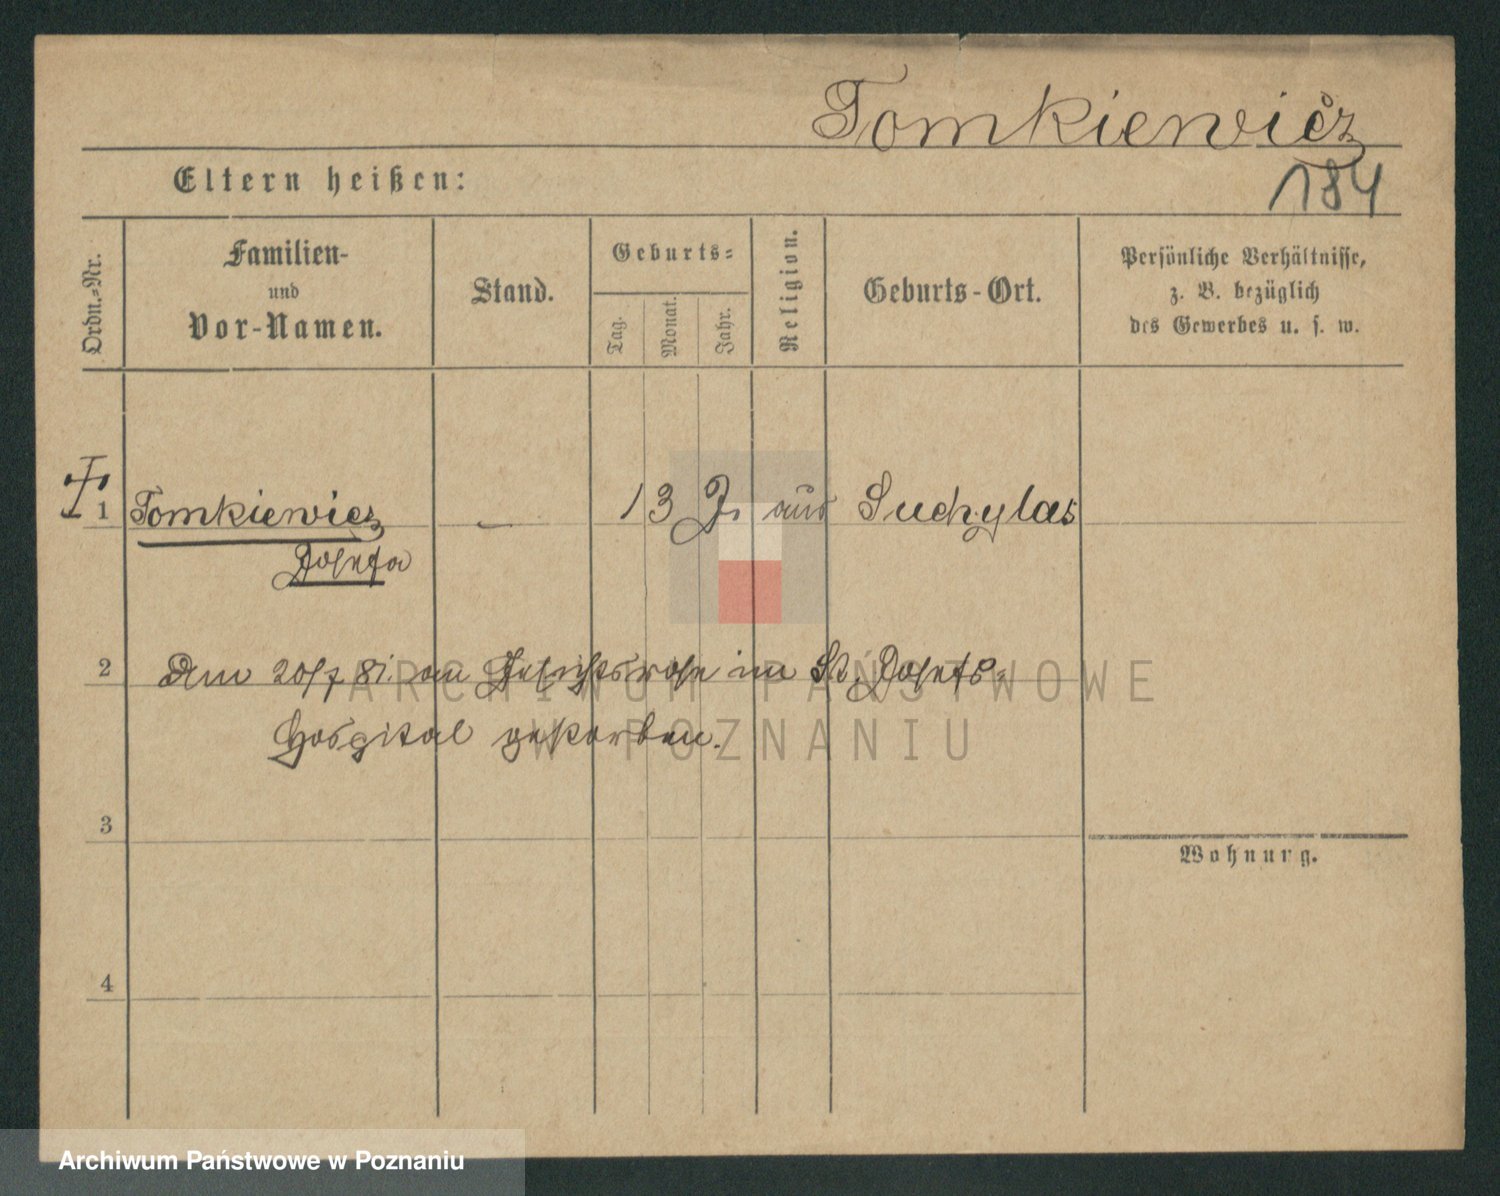 Tomkiewicz
184
Eltern heißen:
Ordn.-Nr.
Familien-
und
Vor-Namen.
Stand.
Geburts-
Tag.
Monat.
Jahr.
Religion.
Geburts-Ort.
Persönliche Verhältnisse,
z. B. bezüglich
des Gewerbes u. s. w.
1 Tomkiewicz — 13 J. aus Suchylas
Josefa
2 Am 20/7 81. an Gesichtsrose im St. Josefs-
Hospital gestorben.
3
Wohnung.
4
ARCHIWUM PAŃSTWOWE
W POZNANIU
Archiwum Państwowe w Poznaniu